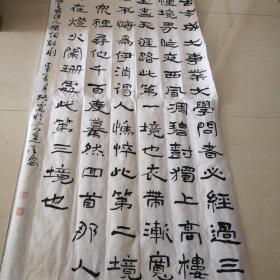 古今成大事業大學問者必經過三
種境界昨夜西風凋碧樹獨上高樓
盡天涯路此第一境也衣帶漸寬
不悔為伊消得人憔悴此第二境
眾裡尋他千百度驀然回首那人
在燈火闌珊處此第三境也